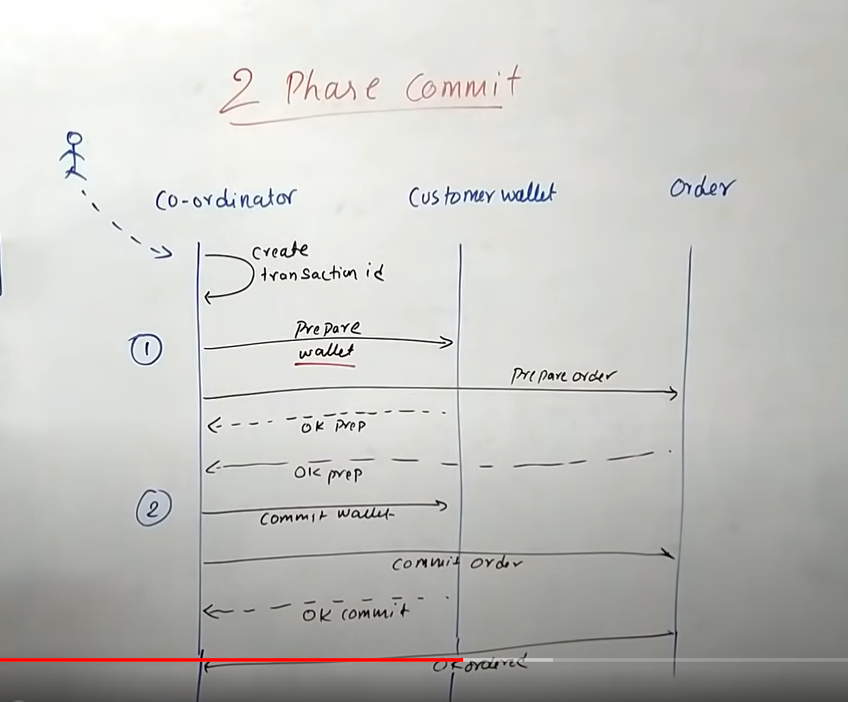 2 Phase Commit
Co-ordinator
Customer wallet
Order
Create
transaction id
1
Prepare
wallet
Prepare order
OK Prep
OK prep
2
Commit wallet
Commit order
OK commit
OK ordered